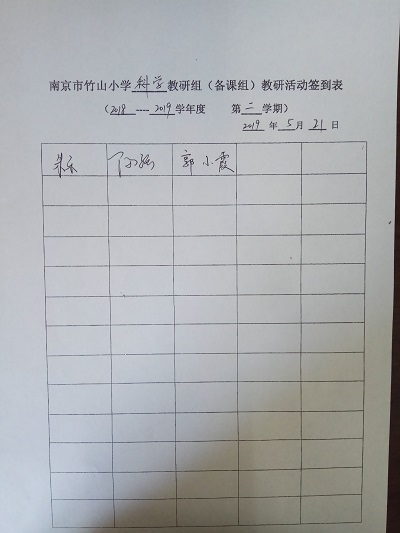 南京市竹山小学科学教研组（备课组）教研活动签到表
（2018 ---- 2019学年度 第二学期）
2019 年 5月 21 日
郭小霞